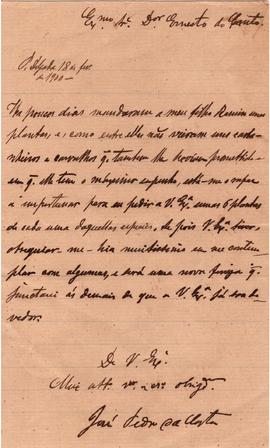 Exmo Sr. Dor Ernesto do Canto.
P. Delgada 18 de
de 1900 —
Ha poucos dias mandaram a meu filho umas
plantas, e como entre ellas não vieram uns
e carvalhos q. tambem lhe haviam promettido
em q. elle tem o empenho,
a importunar para eu pedir a V. Exa. umas plantas
de cada uma daquellas especies,
obsequiar-me-hia muitissimo em me contem-
plar com algumas, e será uma nova fineza q.
juntarei ás demais de que a V. Exa. já sou de-
vedor.
De V. Exa.
Mto att. vor e cro obrigdo.
José Pedro da Costa